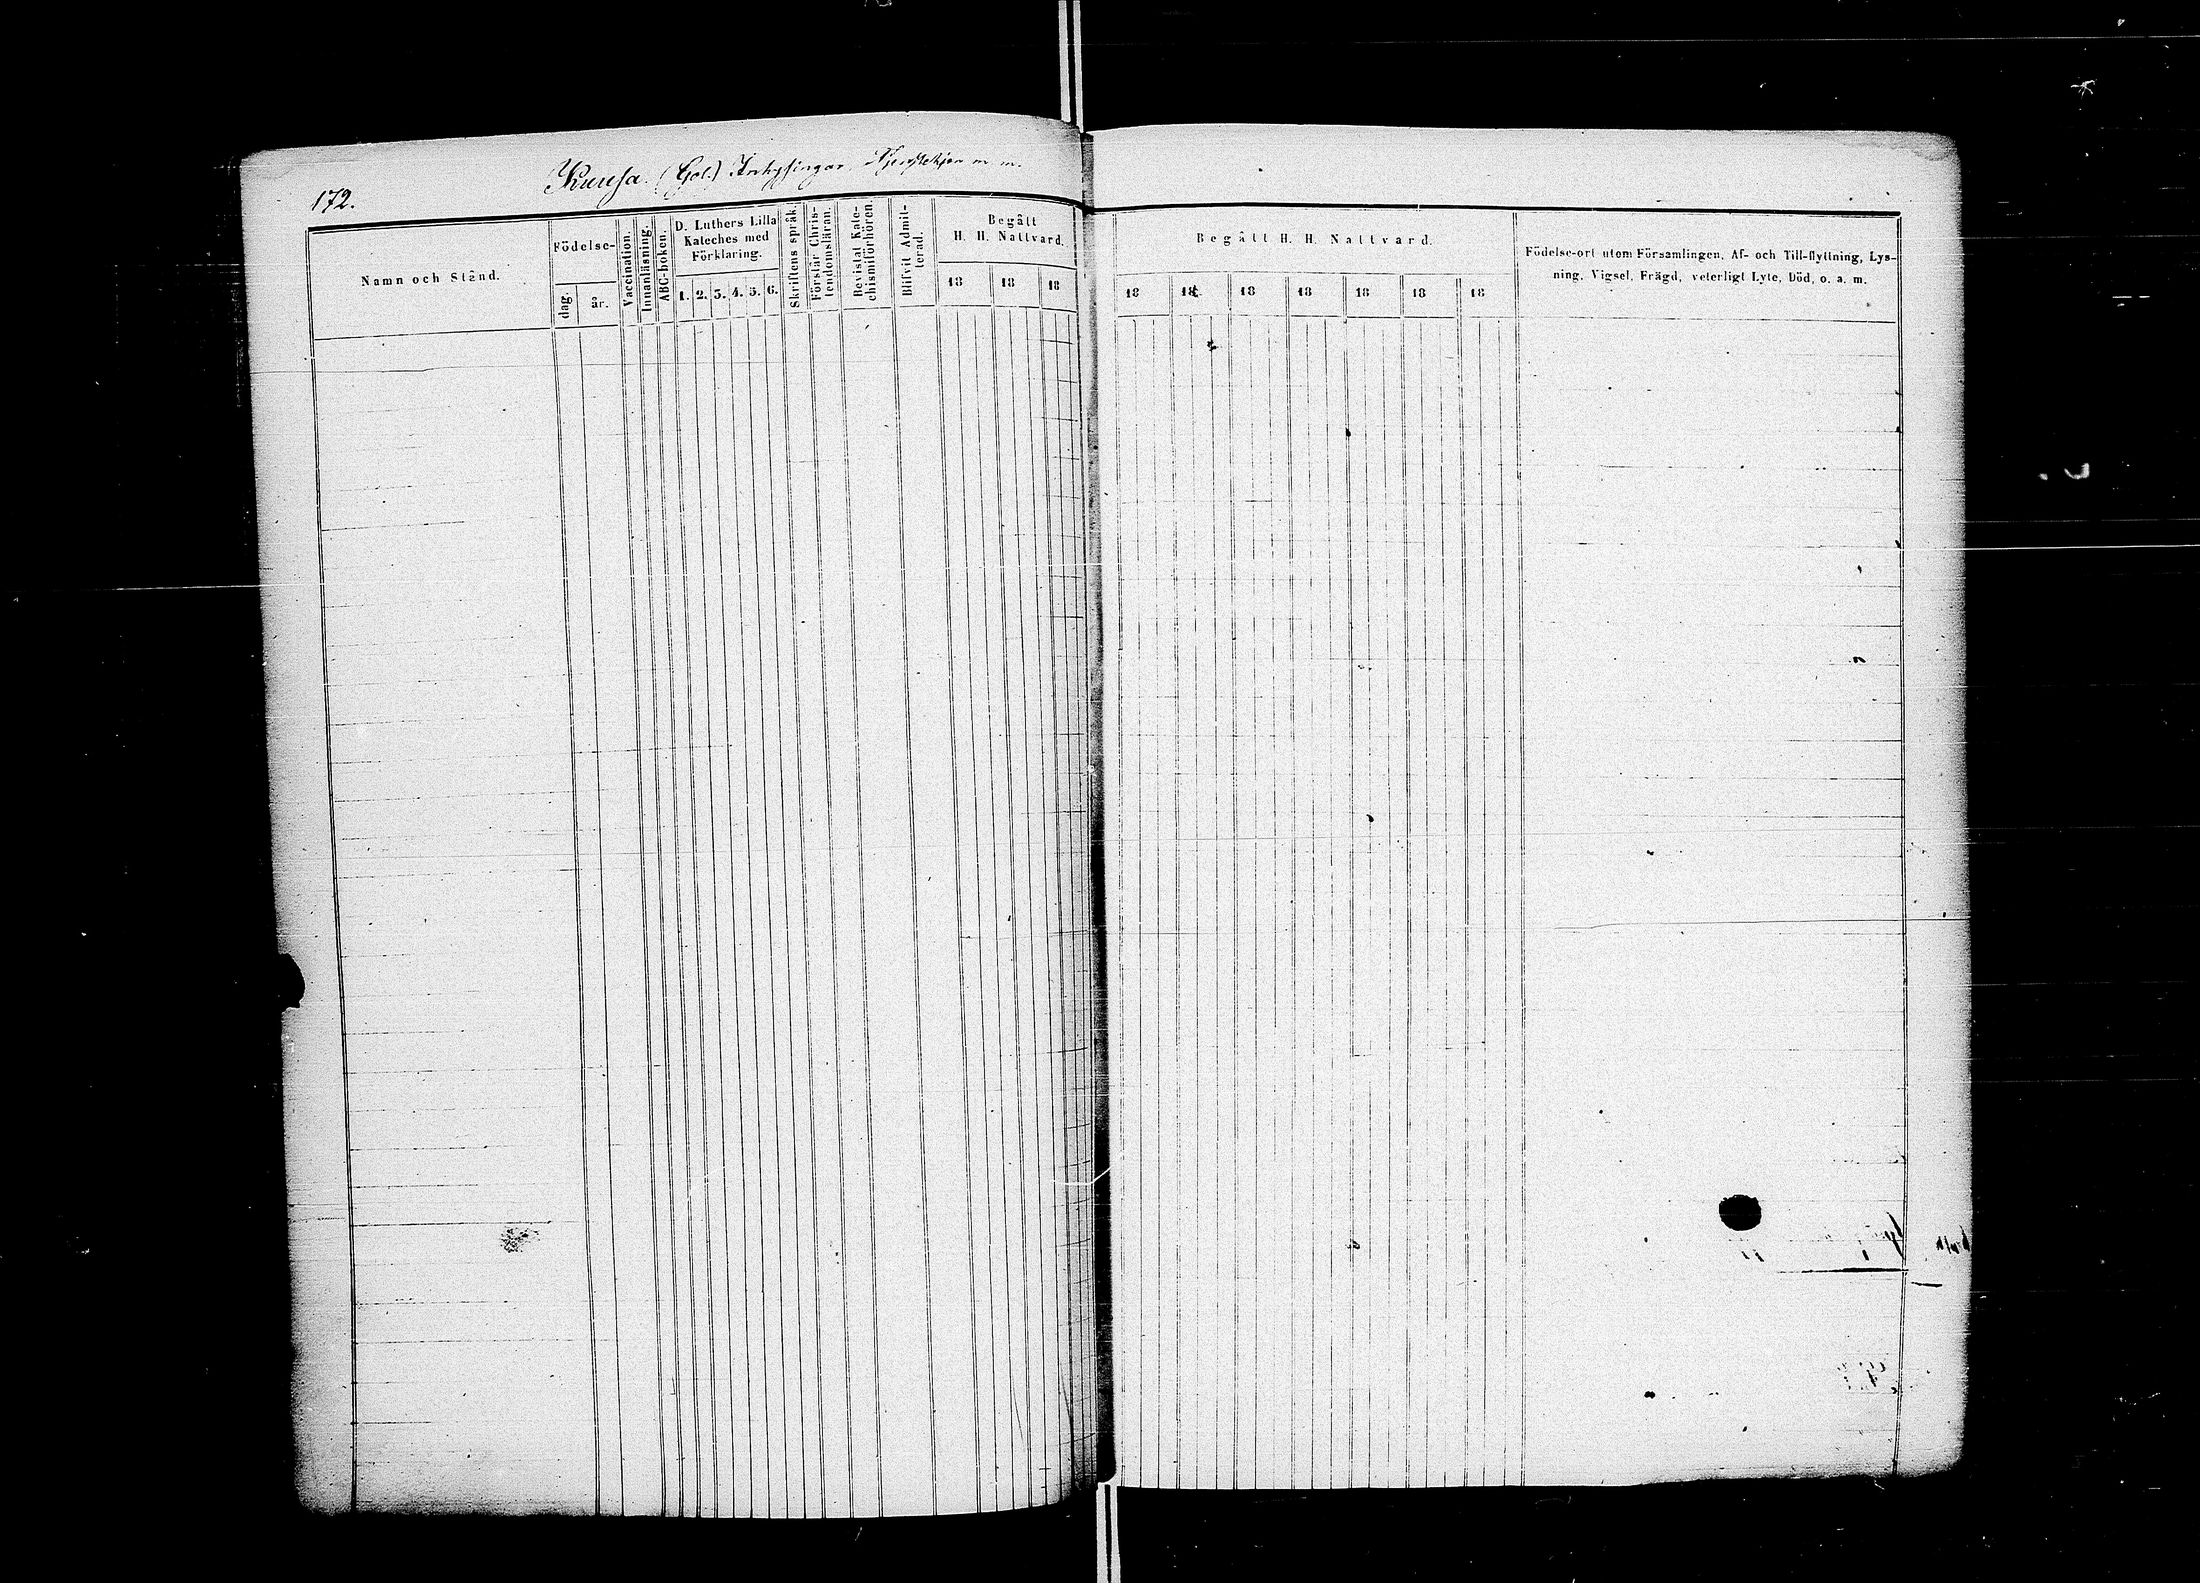 172.
Kuusa. (Gol.) Inhysingar, m m.
Namn och Stånd.
Födelse-
dag.
år.
Vaccination.
Innanläsning.
ABC-boken.
D. Luthers Lilla
Kateches med
Förklaring.
1. 2. 3. 4. 5. 6.
Skriftens språk.
Förstår Chris-
tendomsläran.
Bevistat Kate-
chismiförhören.
Blifvit Admit-
terad.
Begått
H. H. Nattvard.
18 18 18
Begått H. H. Nattvard.
18 18 18 18 18 18 18
Födelse-ort utom Församlingen, Af- och Till-flyttning, Lys-
ning, Vigsel, Frägd, veterligt Lyte, Död, o. a. m.